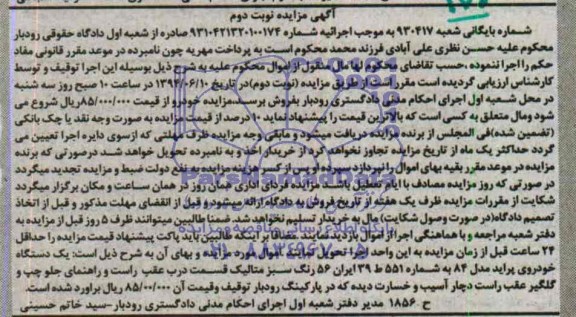 آگهی مزایده نوبت دوم
شماره بایگانی شعبه ۹۳۰۴۱۷ به موجب اجرائیه شماره ۹۳۱۰۴۲۱۳۲۰۱۰۰۱۷۴ صادره از شعبه اول دادگاه حقوقی رودبار
محکوم علیه حسن نظری علی آبادی فرزند محمد محکوم است به پرداخت مهریه چون نامبرده در موعد مقرر قانونی مفاد
حکم را اجرا ننموده ،حسب تقاضای محکوم لها مال منقول از اموال محکوم علیه به شرح ذیل بوسیله این اجرا توقیف و توسط
کارشناس ارزیابی گردیده است مقرر است از طریق مزایده (نوبت دوم)در تاریخ ۱۳۹۴/۰۶/۱۰ در ساعت ۱۰ صبح روز سه شنبه
در محل شعبه اول اجرای احکام مدنی دادگستری رودبار بفروش برسد.مزایده خودرو از قیمت ۸۵/۰۰۰/۰۰۰ریال شروع می
شود ومال متعلق به کسی است که بالاترین قیمت را پیشنهاد نماید ۱۰ درصد از قیمت مزایده به صورت وجه نقد یا چک بانکی
(تضمین شده)فی المجلس از برنده مزایده دریافت میشود و مابقی وجه مزایده ظرف مهلتی که ازسوی دایره اجرا تعیین می
گردد حداکثر یک ماه از تاریخ مزایده تجاوز نخواهد کرد از خریدار اخذ و به نامبرده تحویل خواهد شد.درصورتی که برنده
مزایده در موعد مقرر بقیه بهای اموال را نپردازد سپرده او پس از کسر هزینه مزایده به نفع دولت ضبط و مزایده تجدید میگردد
در صورتی که روز مزایده مصادف با ایام تعطیل باشد مزایده فردای اداری همان روز در همان ساعت و مکان برگزار میگردد
شکایت از مقررات مزایده ظرف یک هفته از تاریخ فروش به دادگاه ارائه میشود و قبل از انقضای مهلت مذکور و قبل از اتخاذ
تصمیم دادگاه(در صورت وصول شکایت) مال به خریدار تسلیم نخواهد شد.ضمنا طالبین میتوانند ظرف ۵ روز قبل از مزایده به
دفتر شعبه مراجعه و با هماهنگی اجرا از اموال بازدید نمایند
۲۴ ساعت قبل از زمان مزایده به این واحد اجرا تحویل نمایند اموال مورد مزایده و بهای آن به شرح ذیل است: یک دستگاه
خودروی پراید مدل ۸۴ به شماره ۵۵۱ ط ۳۹ ایران ۵۶ رنگ سبز متالیک قسمت درب عقب راست و راهنمای جلو چپ و
گلگیر عقب راست دچار آسیب و خسارت دیده که در پارکینگ رودبار توقیف وقیمت آن ۸۵/۰۰/۰۰۰ ریال براورد شده است.
ح ۱۸۵۶ مدیر دفتر شعبه اول اجرای احکام مدنی دادگستری رودبار-سید خاتم حسینی